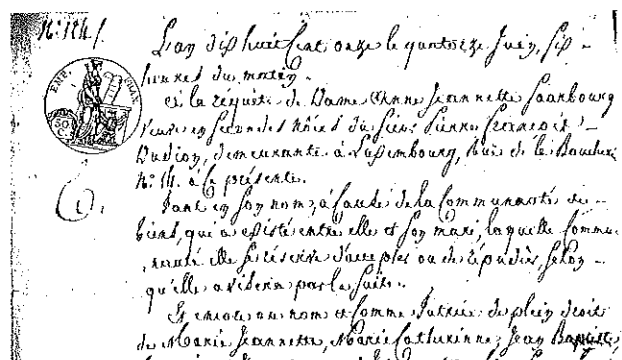 N.° 1141.
L'an dix huit cent onze le quatorze Juin, six -
heures du matin.
EMP. FRAN.
50 C
à la réquête de Dame Anne Jeannette Saarbourg
veuve en secondes nôces du Sieur Pierre
demeurante à Luxembourg, Ruë de la Boucherie
N.° 14. à ce présente.
6.
Tant en son nom, à cause de la Communauté de -
biens, qui a existé entre elle et son mari, laquelle Commu-
nauté elle se réserve d'accepter ou de répudier, selon -
qu'elle avisera par la suite.
Et encore au nom et comme Tutrice de plein droit
de Marie Jeannette, Marie Catherinne, Jean Baptiste